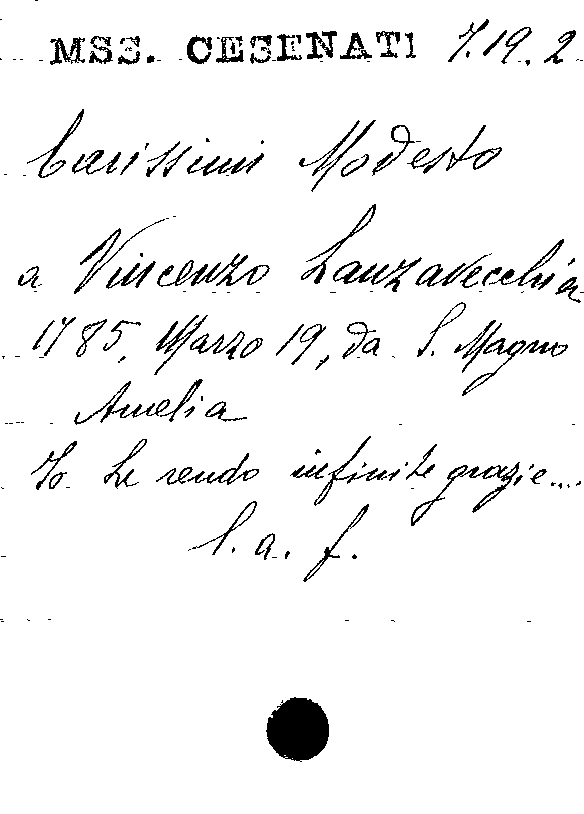 MSS. CESENATI 7.19.2
Carissimi Modesto
a Vincenzo Lanzavecchia
1785, Marzo 19, da S. Magno
Amelia
Io Le rendo infinite grazie....
l. a. f.